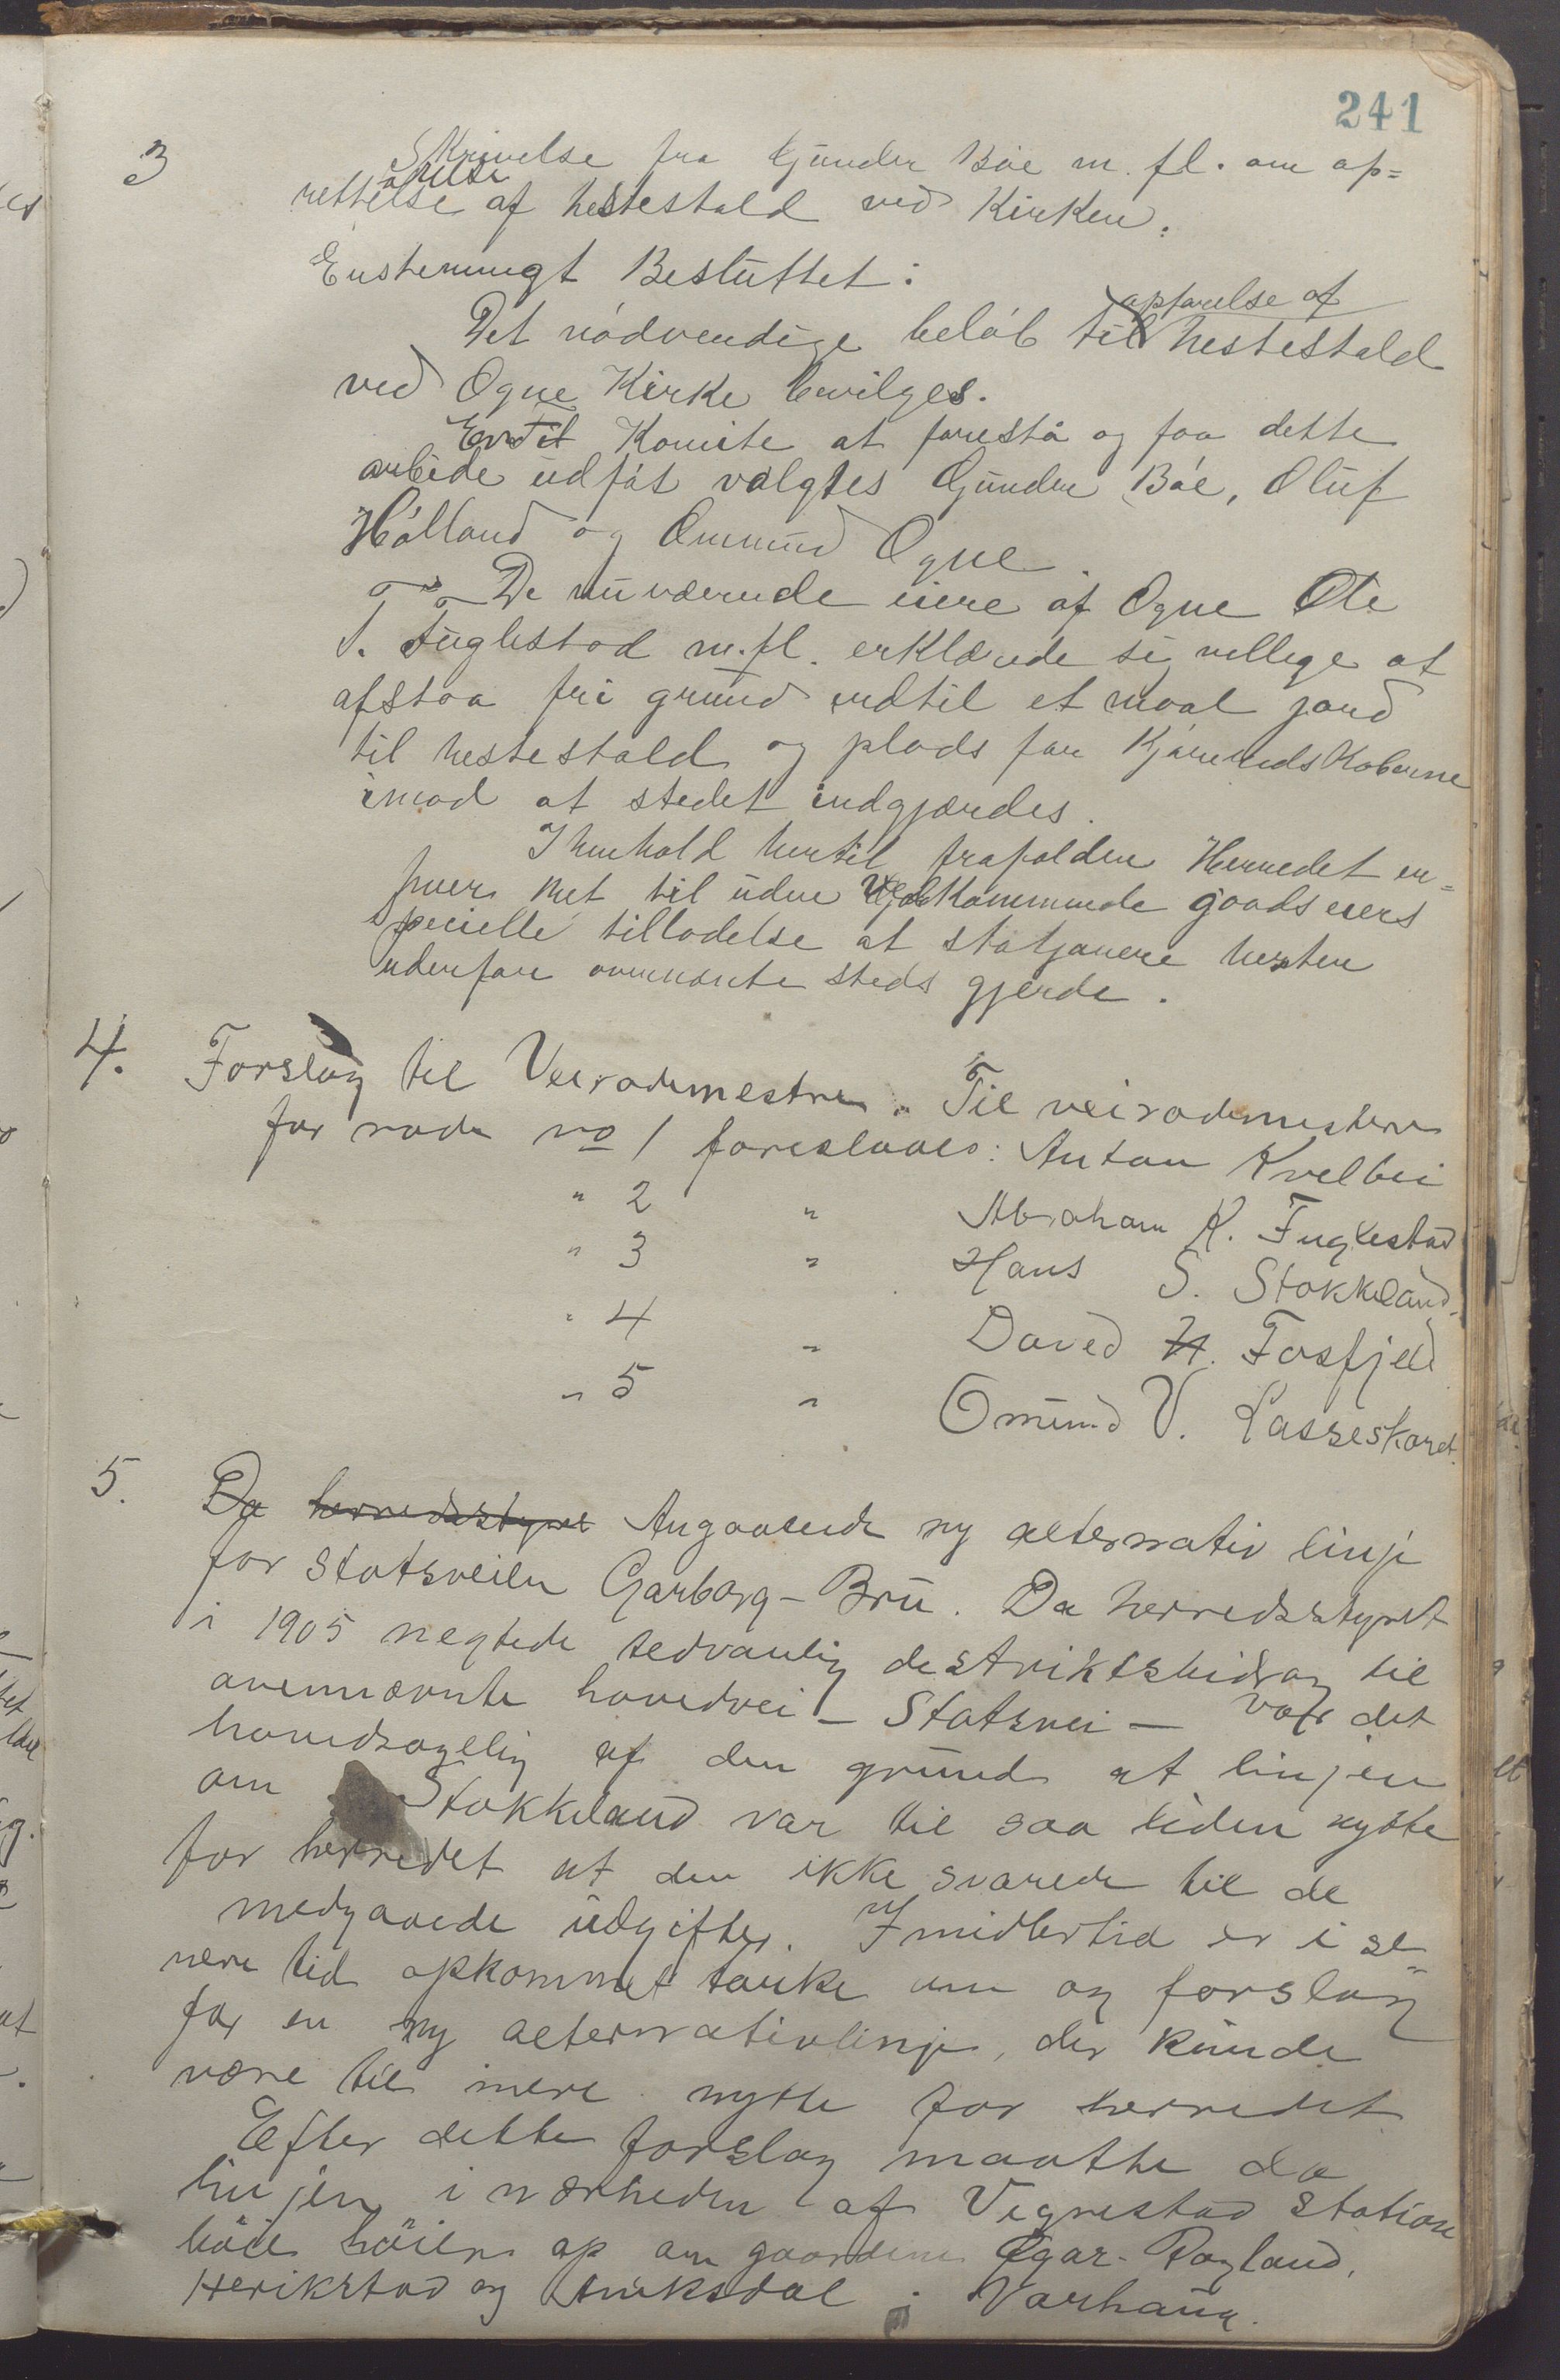 241
3 Skrivelse fra Gjunder Böe m. fl. om op=
rettelse af hestestald ved Kirken.
Enstemmigt Besluttet:
Det nödvendige belöb til opförelse af hestestald
ved Ogne Kirke bevilges.
Til Komite at forestå og faa dette
arbeide udfört valgtes Gjunder Böe, Oluf
Hölland og Ommund Ogne.
De nuværende eiere af Ogne Ole
T. Fuglestad m.fl. erklærede sig villige at
afstaa fri grund indtil et maal jord
til hestestald og plads for Kjöreredskaberne
imod at stedet indgjærdes.
I henhold hertil frafalder Herredet en=
hver ret til uden Vedkommende gaards eiers
specielle tilladelse at stasjonere hesten
udenfor ovennevnte steds gjerde.
4. Forslag til Veirodemestre. Til veirodemestere
for rode no 1 foreslaaes: Anton Kvelbei
" 2 " Abraham K. Fuglestad
" 3 " Hans S. Stokkeland.
" 4 " David H. Fosfjeld
" 5 " Omund V. Lasseskaret.
5. Da herredsstyret Angaaende ny alternativ linje
for Statsveien Garborg - Bru. Da herredsstyret
i 1905 negtede sedvanlig destriktsbidrag til
ovennævnte hovedvei - Statsvei - var det
hovedsagelig af den grund at linjen
om Stokkeland var til saa liden nytte
for herredet at den ikke svarede til de
medgaaede udgifter. Imidlertid er i se=
nere tid opkommet tanke om og forslag
for en ny alternativlinje, der kunde
være til mere nytte for herredet
Efter dette forslag maatte da
linjen i nærheden af Vigrestad station
böie höiere op om gaardene Ogar- Rogland,
Herikstad og Tuksdal i Varhaug.